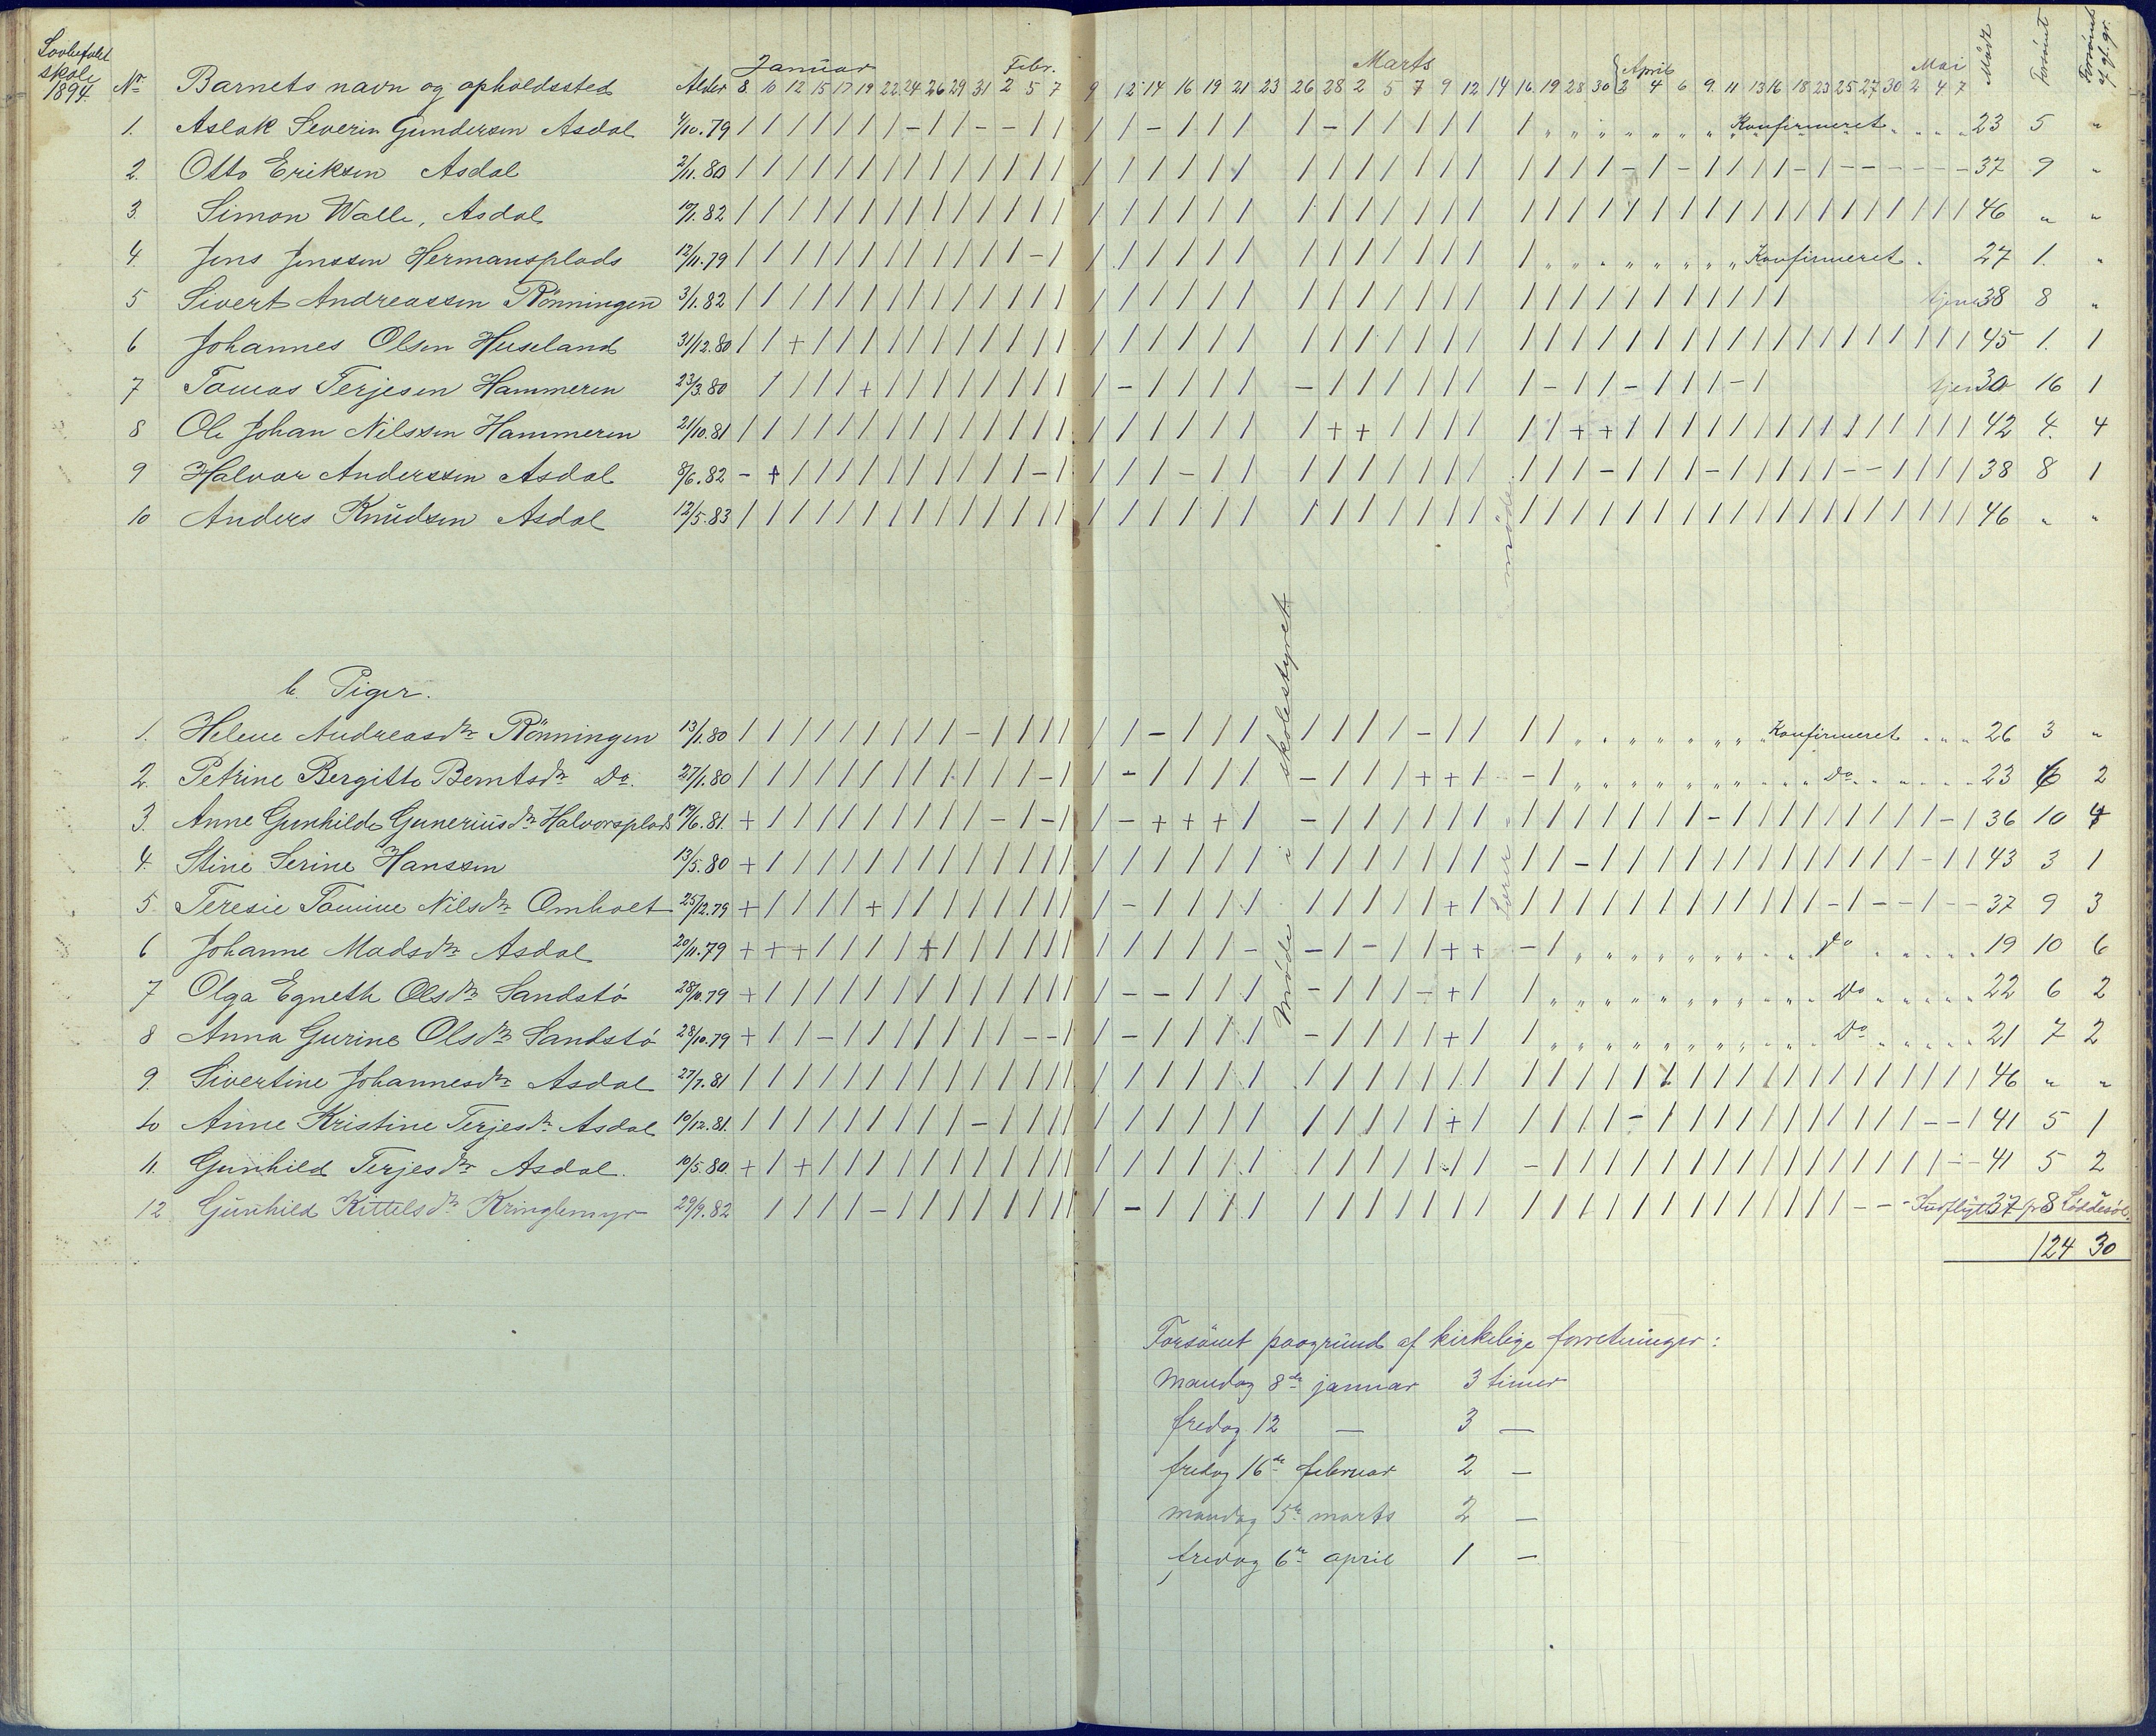 Lovbefalet
skole
1894.
No Barnets navn og opholdssted Alder Januar 8 10 12 15 17 19 22 24 26 29 31 Febr. 2 5 7 9 12 14 16 19 21 23 26 28 Marts 2 5 7 9 12 14 16 19 28 30 April 2 4 6 9 11 13 16 18 23 25 27 30 Mai 2 4 7 Mødt Forsömt Forsömt af gl. gr.
1. Aslak Severin Gundersen Asdal 4/10.79 / / / / / / / - / / - - / / / / - / / / / - / / / / / / / " " " " " " " Konfirmeret " " " " 23 5 "
2. Otto Eriksen Asdal 2/11.80 / / / / / / / / / / / / / / / / / / / / / / / / / / / / / / / / - / - / / / / - / - - - - - - 37 9 "
3. Simon Walle, Asdal 19/1.82 / / / / / / / / / / / / / / / / / / / / / / / / / / / / / / / / / / / / / / / / / / / / / / 46 " "
4. Jens Jenssen Hermansplads 12/11.79 / / / / / / / / / / / / - / / / / / / / / / / / / / / / / " " " " " " " " Konfirmeret " 27 1. "
5 Sivert Andreassen Rönningen 3/1.82 / / / / / / / / / / / / / / / / / / / / / / / / / / / / / / / / / / / / / / tjen 38 8 "
6 Johannes Olsen Huseland 31/12.80 / / + / / / / / / / / / / / / / / / / / / / / / / / / / / / / / / / / / / / / / / / / / / / 45 1. 1
7 Tomas Terjesen Hammeren 23/3.80 / / / / + / / / / / / / / / - / / / / - / / / / / / / - / / - / / / - / tjen 30 16 1
8 Ole Johan Nilssen Hammeren 21/10.81 / / / / / / / / / / / / / / / / / / / / / + + / / / / / / + + / / / / / / / / / / / / / / 42 4. 4
9 Halvor Anderssen Asdal 8/6.82 - + / / / / / / / / / / - / / / / - / / / / / / / / / / / / - / / / - / / / / / - - / / / / 38 8 1
10 Anders Knudsen Asdal 12/5.83 / / / / / / / / / / / / / / / / / / / / / / / / / / / / / / / / / / / / / / / / / / / / / / 46 " "
Møde i skolestyret
Lærer møde
b. Piger.
1. Helene Andreasdtr Rönningen 13/1.80 / / / / / / / / / - / / / / / / - / / / / / / / - / / / / " " " " " " " Konfirmeret " " " 26 3 "
2. Petrine Bergitte Berntsdtr Do. 27/1.80 / / / / / / / / / / / / - / / - / / / / - / / / + + / - / " " " " " " " " " Do " " " " " 23 6 2
3. Anne Gunhilde Guneriusdtr Halvorsplads 19/6.81. + / / / / / / / / / - / - / / - + + + / - / / / / / / / / / / / / / - / / / / / / / / - / 36 10 4
4. Stine Serine Hanssen 13/5.80 + / / / / / / / / / / / / / / / / / / / / / / / / / / / / - / / / / / / / / / / / / - / / 43 3 1
5. Teresie Tomine Nilsdtr Omholt 25/12.79 + / / / / + / / / / / / / / / - / / / / / / / / / + / / / / / / / / / / / / / - / - - / - - 37 9 3
6 Johanne Madsdtr Asdal 20/11.79 + + + / / / / + / / / / / / / / / / / - - / - / / + + - / " " " " " " " " " Do " " " " 19 10 6
7 Olga Egneth Olsdtr Sandstö 28/10.79 + / / / / / / / / / / / / / / - - / / / - / / / - + / / " " " " " " " " " Do " " " " 22 6 2
8 Anna Gurine Olsdtr Sandstö 28/10.79 + / / - / / / / / / / - - / / - / / / / - / / / / + / / " " " " " " " " " Do " " " " 21 7 2
9. Sivertine Johannesdtr Asdal 27/7.81 / / / / / / / / / / / / / / / / / / / / / / / / / / / / / / / / / / / / / / / / / / / / / / 46 " "
10 Anne Kristine Terjesdtr Asdal 10/12.81. / / / / / / / / / - / / / / / / / / / / / / / / / + / / / / / - / / / / / / / / / / - - / 41 5 1
11. Gunhild Terjesdtr Asdal. 10/5.80 + / + / / / / / / / / / / / / / / / / / / / / / / / / - / / / / / / / / / / / / / / / - - 41 5 2
12 Gunhild Kittelsdtr Kringlemyr 29/9.82 / / / / - / / / / / / / / / - / / / / / / / / / / / / / / / / / / / / / / / - - - 37 8 "
124 30
Forsömt paagrund af kirkelige forretninger:
Mandag 8de januar 3 timer
fredag 12 — 3 —
fredag 16de februar 2 —
mandag 5te marts 2 —
fredag 6te april 1 —